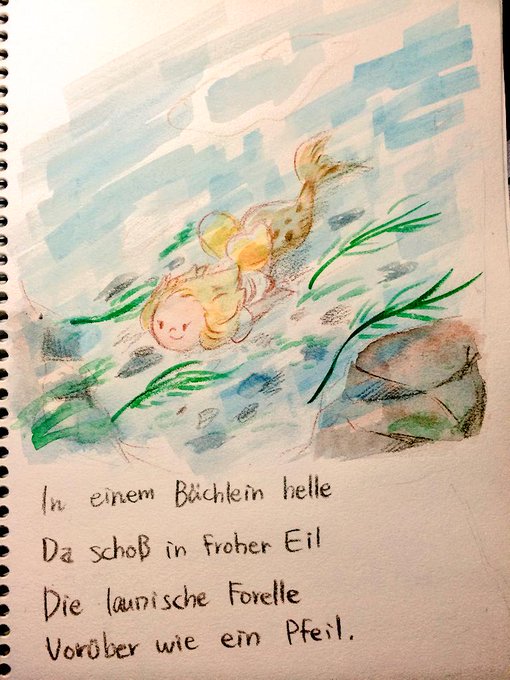 In einem Bächlein helle
Da schoß in froher Eil
Die launische Forelle
Vorüber wie ein Pfeil.